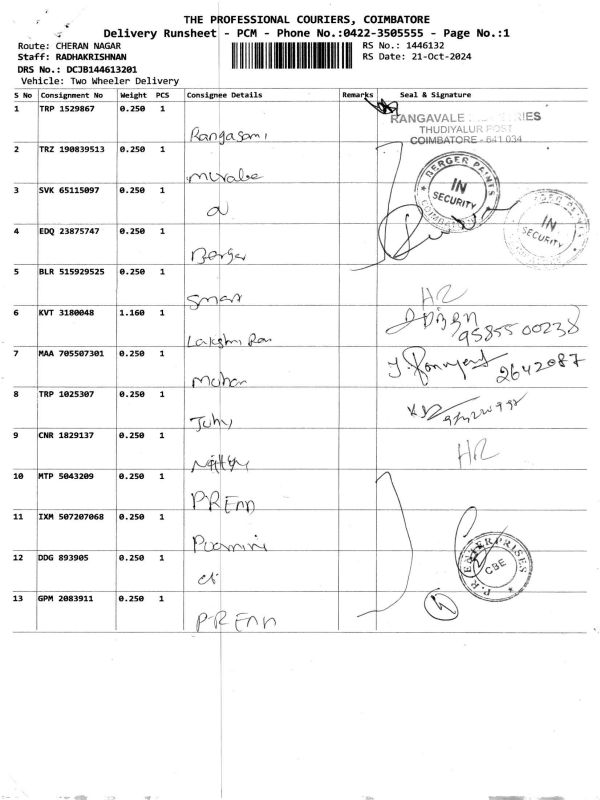 THE PROFESSIONAL COURIERS, COIMBATORE
Delivery Runsheet - PCM - Phone No.:0422-3505555 - Page No.:1
Route: CHERAN NAGAR RS No.: 1446132
Staff: RADHAKRISHNAN RS Date: 21-Oct-2024
DRS No.: DCJB144613201
Vehicle: Two Wheeler Delivery
S No Consignment No Weight PCS Consignee Details Remarks Seal & Signature
1 TRP 1529867 0.250 1
RANGAVALE INDUSTRIES
THUDIYALUR POST
COIMBATORE - 641 034
Rangasami
2 TRZ 190839513 0.250 1
BERGER PAINTS
IN
SECURITY
COIMBATORE
3 SVK 65115097 0.250 1
IN
SECURITY
4 EDQ 23875747 0.250 1
Berger
5 BLR 515929525 0.250 1
Smart
HR
6 KVT 3180048 1.160 1
9585500238
Lakshmi
7 MAA 705507301 0.250 1
2642087
Mohan
8 TRP 1025307 0.250 1
9 CNR 1829137 0.250 1
HR
10 MTP 5043209 0.250 1
PR Enn
11 IXM 507207068 0.250 1
12 DDG 893905 0.250 1
P.R. ENTERPRISES
CBE
13 GPM 2083911 0.250 1
PR Enn